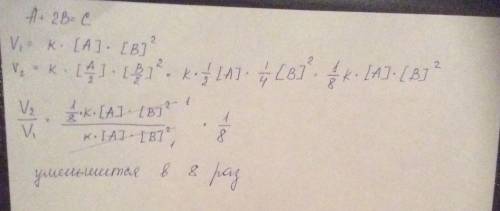 A + 2B = C
V₁ = K · [A] · [B]²
V₂ = K · [A/2] · [B/2]² = K · 1/2 [A] · 1/4 [B]² = 1/8 K · [A] · [B]²
V₂/V₁ = 1/8 · K · [A] · [B]² 1 / K · [A] · [B]² 1 = 1/8
уменьшится в 8 раз